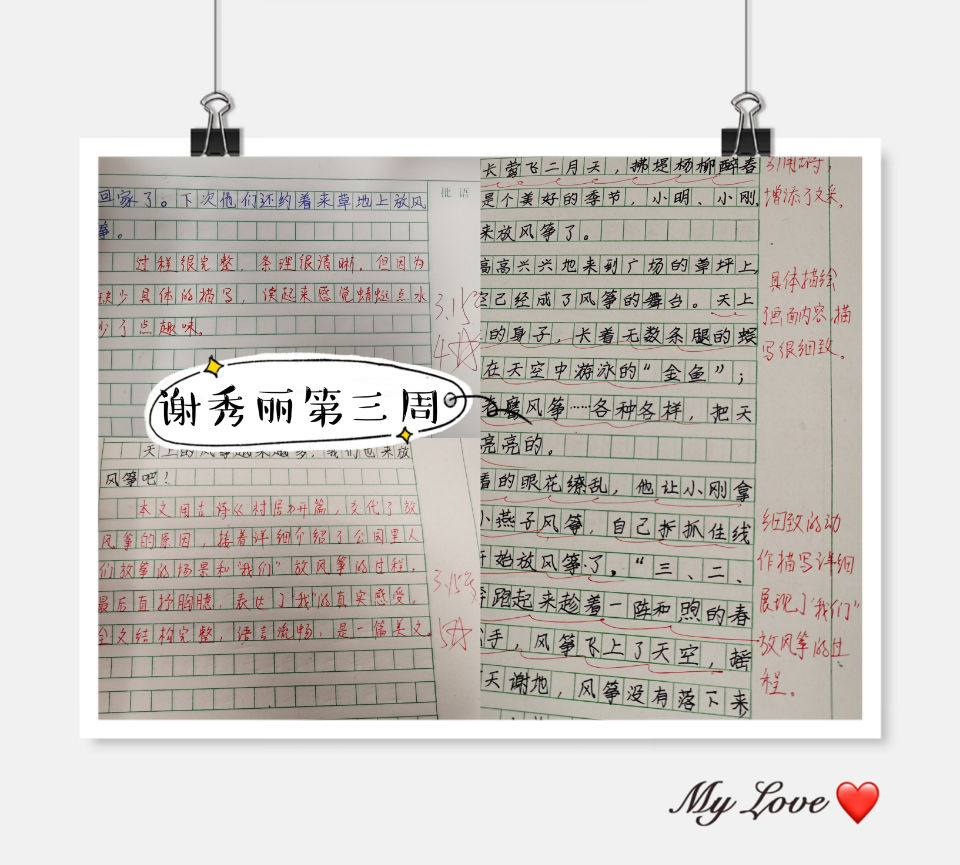 回家了。下次他们还约着来草地上放风
筝。
过程很完整,条理很清晰,但因为
缺少具体的描写,读起来感觉蜻蜓点水
少了点趣味。
批 语
3.15
4☆
谢秀丽第三周
天上的风筝越来越多,我们也来放
风筝吧!
本文用古诗《村居》开篇,交代了放
风筝的原因,接着详细介绍了公园里人
们放筝的场景和“我们”放风筝的过程,
最后直抒胸臆,表达了“我”的真实感受。
全文结构完整,语言流畅,是一篇美文。
3.15
5☆
长莺飞二月天,拂堤杨柳醉春
是个美好的季节,小明、小刚
来放风筝了。
高高兴兴地来到广场的草坪上,
空已经成了风筝的舞台。天上
的身子,长着无数条腿的蜈
在天空中游泳的“金鱼”;
风筝……各种各样,把天
亮亮的。
看的眼花缭乱,他让小刚拿
小燕子风筝,自己抓住线
开始放风筝了。“三、二、
奔跑起来趁着一阵和煦的春
手,风筝飞上了天空,摇
天谢地,风筝没有落下来
引用古诗,
增添了文采。
具体描绘
了画面内容,描
写很细致。
细致的动
作描写详细
展现了“我们”
放风筝的过
程。
My Love